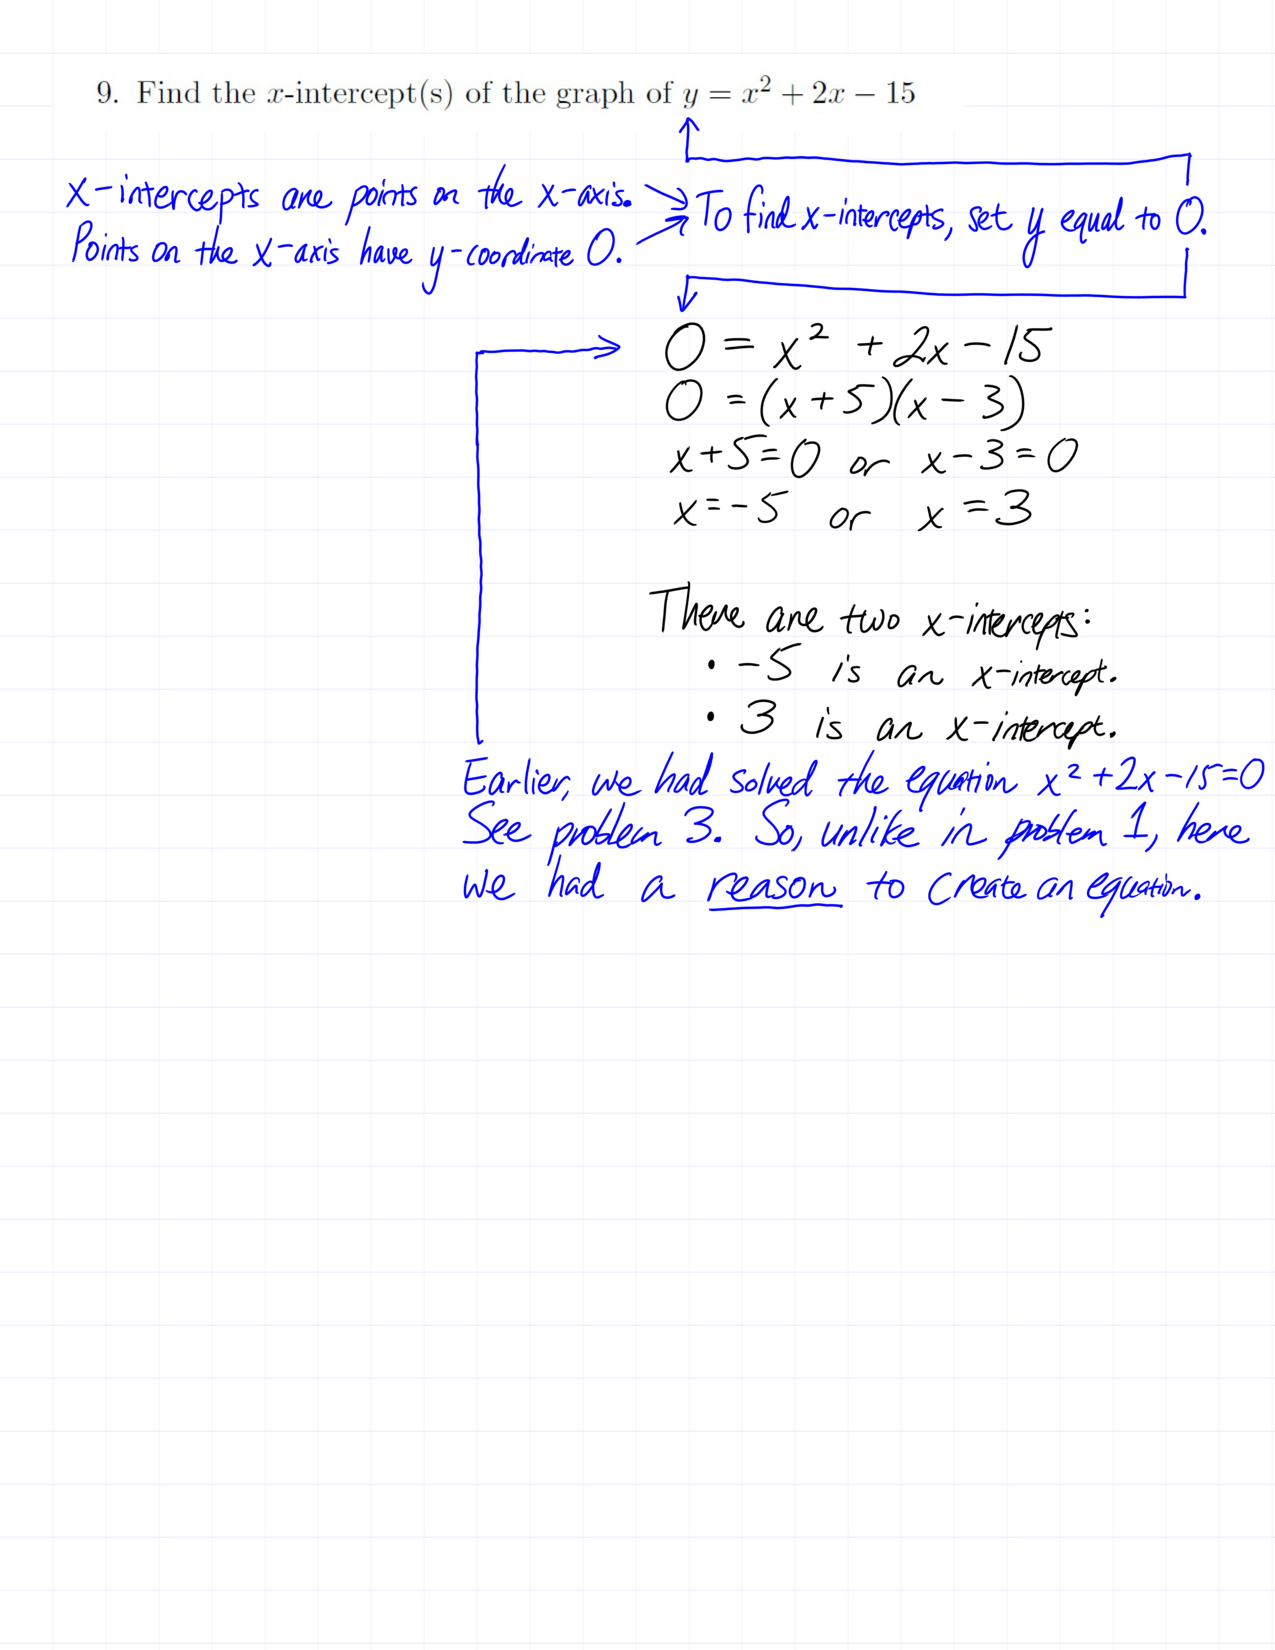 9. Find the x-intercept(s) of the graph of y = x² + 2x − 15
x-intercepts are points on the x-axis.
Points on the x-axis have y-coordinate 0.
To find x-intercepts, set y equal to 0.
0 = x² + 2x - 15
0 = (x+5)(x-3)
x+5=0 or x-3=0
x=-5 or x=3
There are two x-intercepts:
• -5 is an x-intercept.
• 3 is an x-intercept.
Earlier, we had solved the equation x²+2x-15=0
See problem 3. So, unlike in problem 1, here
we had a reason to create an equation.